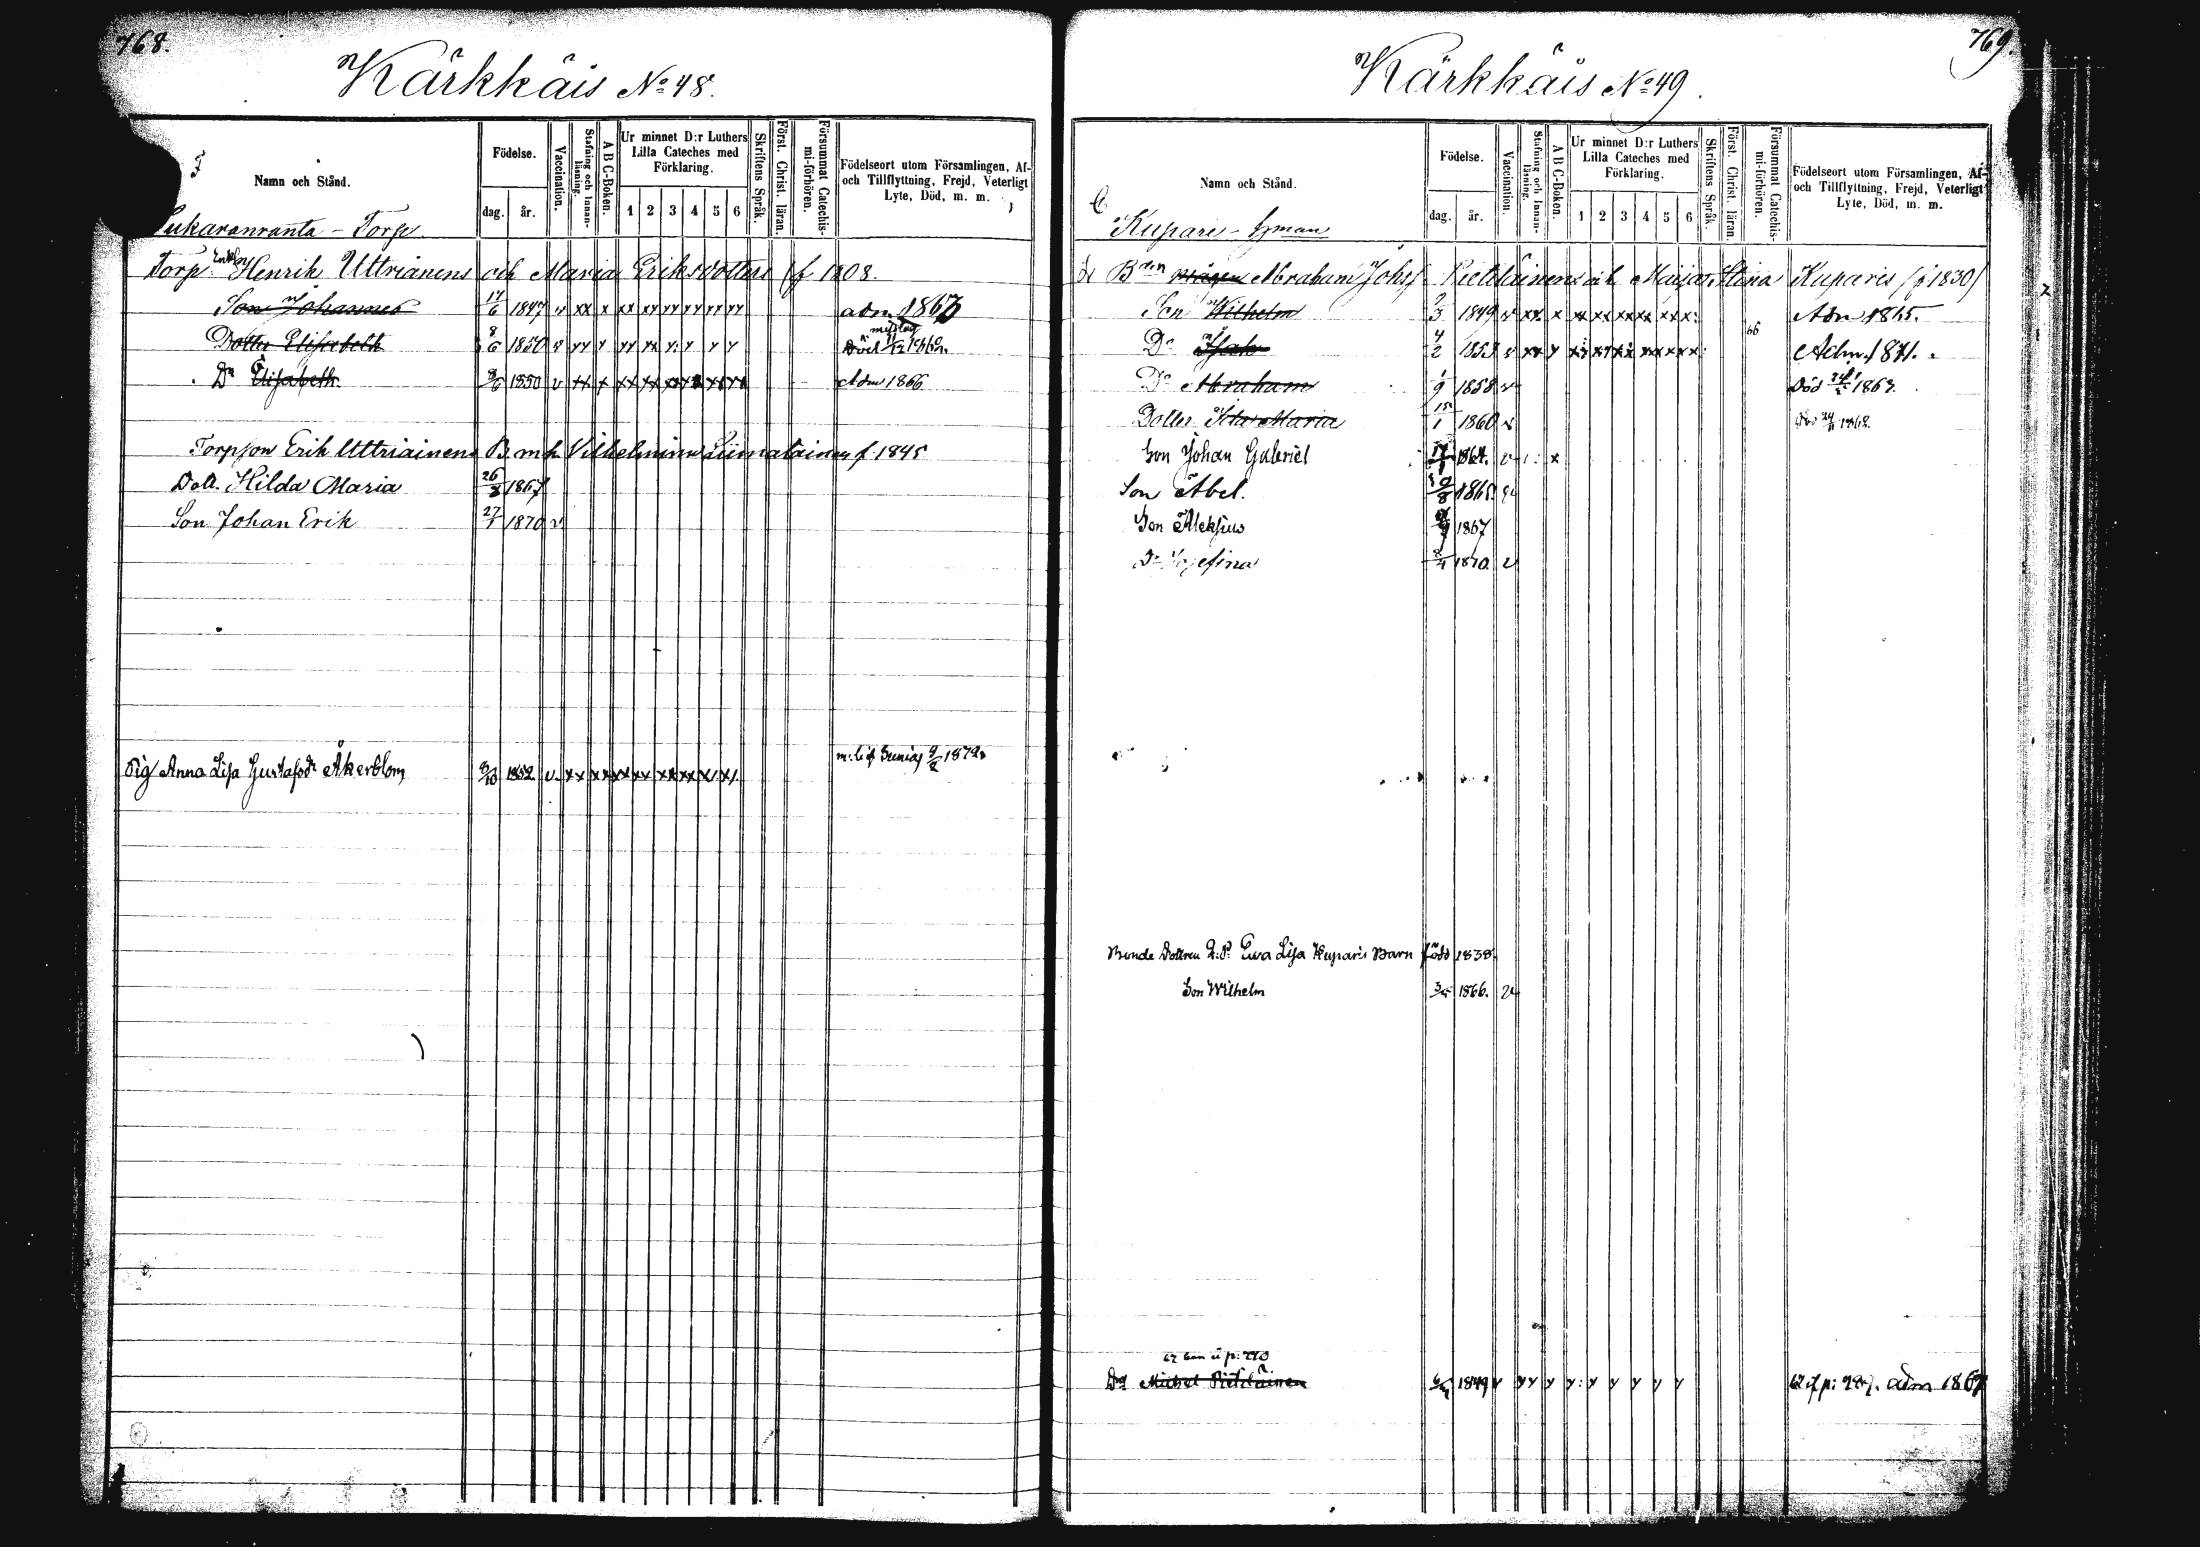 768.
Kärkkäis No 48.
Namn och Stånd.
Födelse.
dag.
år.
Vaccination.
Stafning och Innan-läsning.
A B C-Boken.
Ur minnet D:r Luthers Lilla Cateches med Förklaring.
1 2 3 4 5 6
Skriftens Språk.
Först. Christ. läran.
Försummat Catechis-mi-förhören.
Födelseort utom Församlingen, Af- och Tillflyttning, Frejd, Veterligt Lyte, Död, m. m.
Torp
Torp. Enk. Henrik Uttriainens och Maria Eriksdotters (f 1808.
Son Johannes 17/6 1847 v xx x xx xx xx xx xx xx adm 1867
Dotter Elisabeth 8/6 1850 Död
Dr Elisabeth 8/6 1850 v xx x xx xx xx xx xx xx Adm 1866
Torpson Erik Uttriainens B. m h Vilhelmina Liimatainen f 1845
Dott. Hilda Maria 26/3 1867
Son Johan Erik 27/1 1870 v
Pig Anna Lisa Gustafsdr Åkerblom 8/10 1852 v. xx xx xx xx xx xx x x 1872
769.
Kärkkäis No 49.
Namn och Stånd.
Födelse.
dag.
år.
Vaccination.
Stafning och Innan-läsning.
A B C-Boken.
Ur minnet D:r Luthers Lilla Cateches med Förklaring.
1 2 3 4 5 6
Skriftens Språk.
Först. Christ. läran.
Försummat Catechis-mi-förhören.
Födelseort utom Församlingen, Af- och Tillflyttning, Frejd, Veterligt Lyte, Död, m. m.
Kupari - Hman
Bdn Abraham Johs Pietiläinens och Maija Stina Kuparis (f 1830)
Son Wilhelm 2/3 1849 v xx x xx xx xx xx xx: Adm 1865.
Do Isak 4/2 1853 v xx Adm. 1871.
66
Do Abraham 1/9 1858 v Död 1867.
Dotter Ida Maria 15/1 1860 v 1868.
Son Johan Gabriel 1864. v x
Son Abel. 1865.
Son Aleksius 1867
Dr Josefina 1870. v
Bonde Dottren Q.P. Ewa Lisa Kuparis Barn född 1838.
Son Wilhelm 3/5 1866.
Michel Pietiläinen 1849 adm 1867